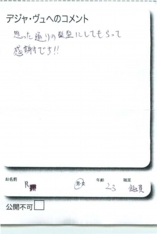 デジャ・ヴュへのコメント
思った通りの髪型にしてもらって
感謝です!!
お名前
年齢 23 職業
公開不可